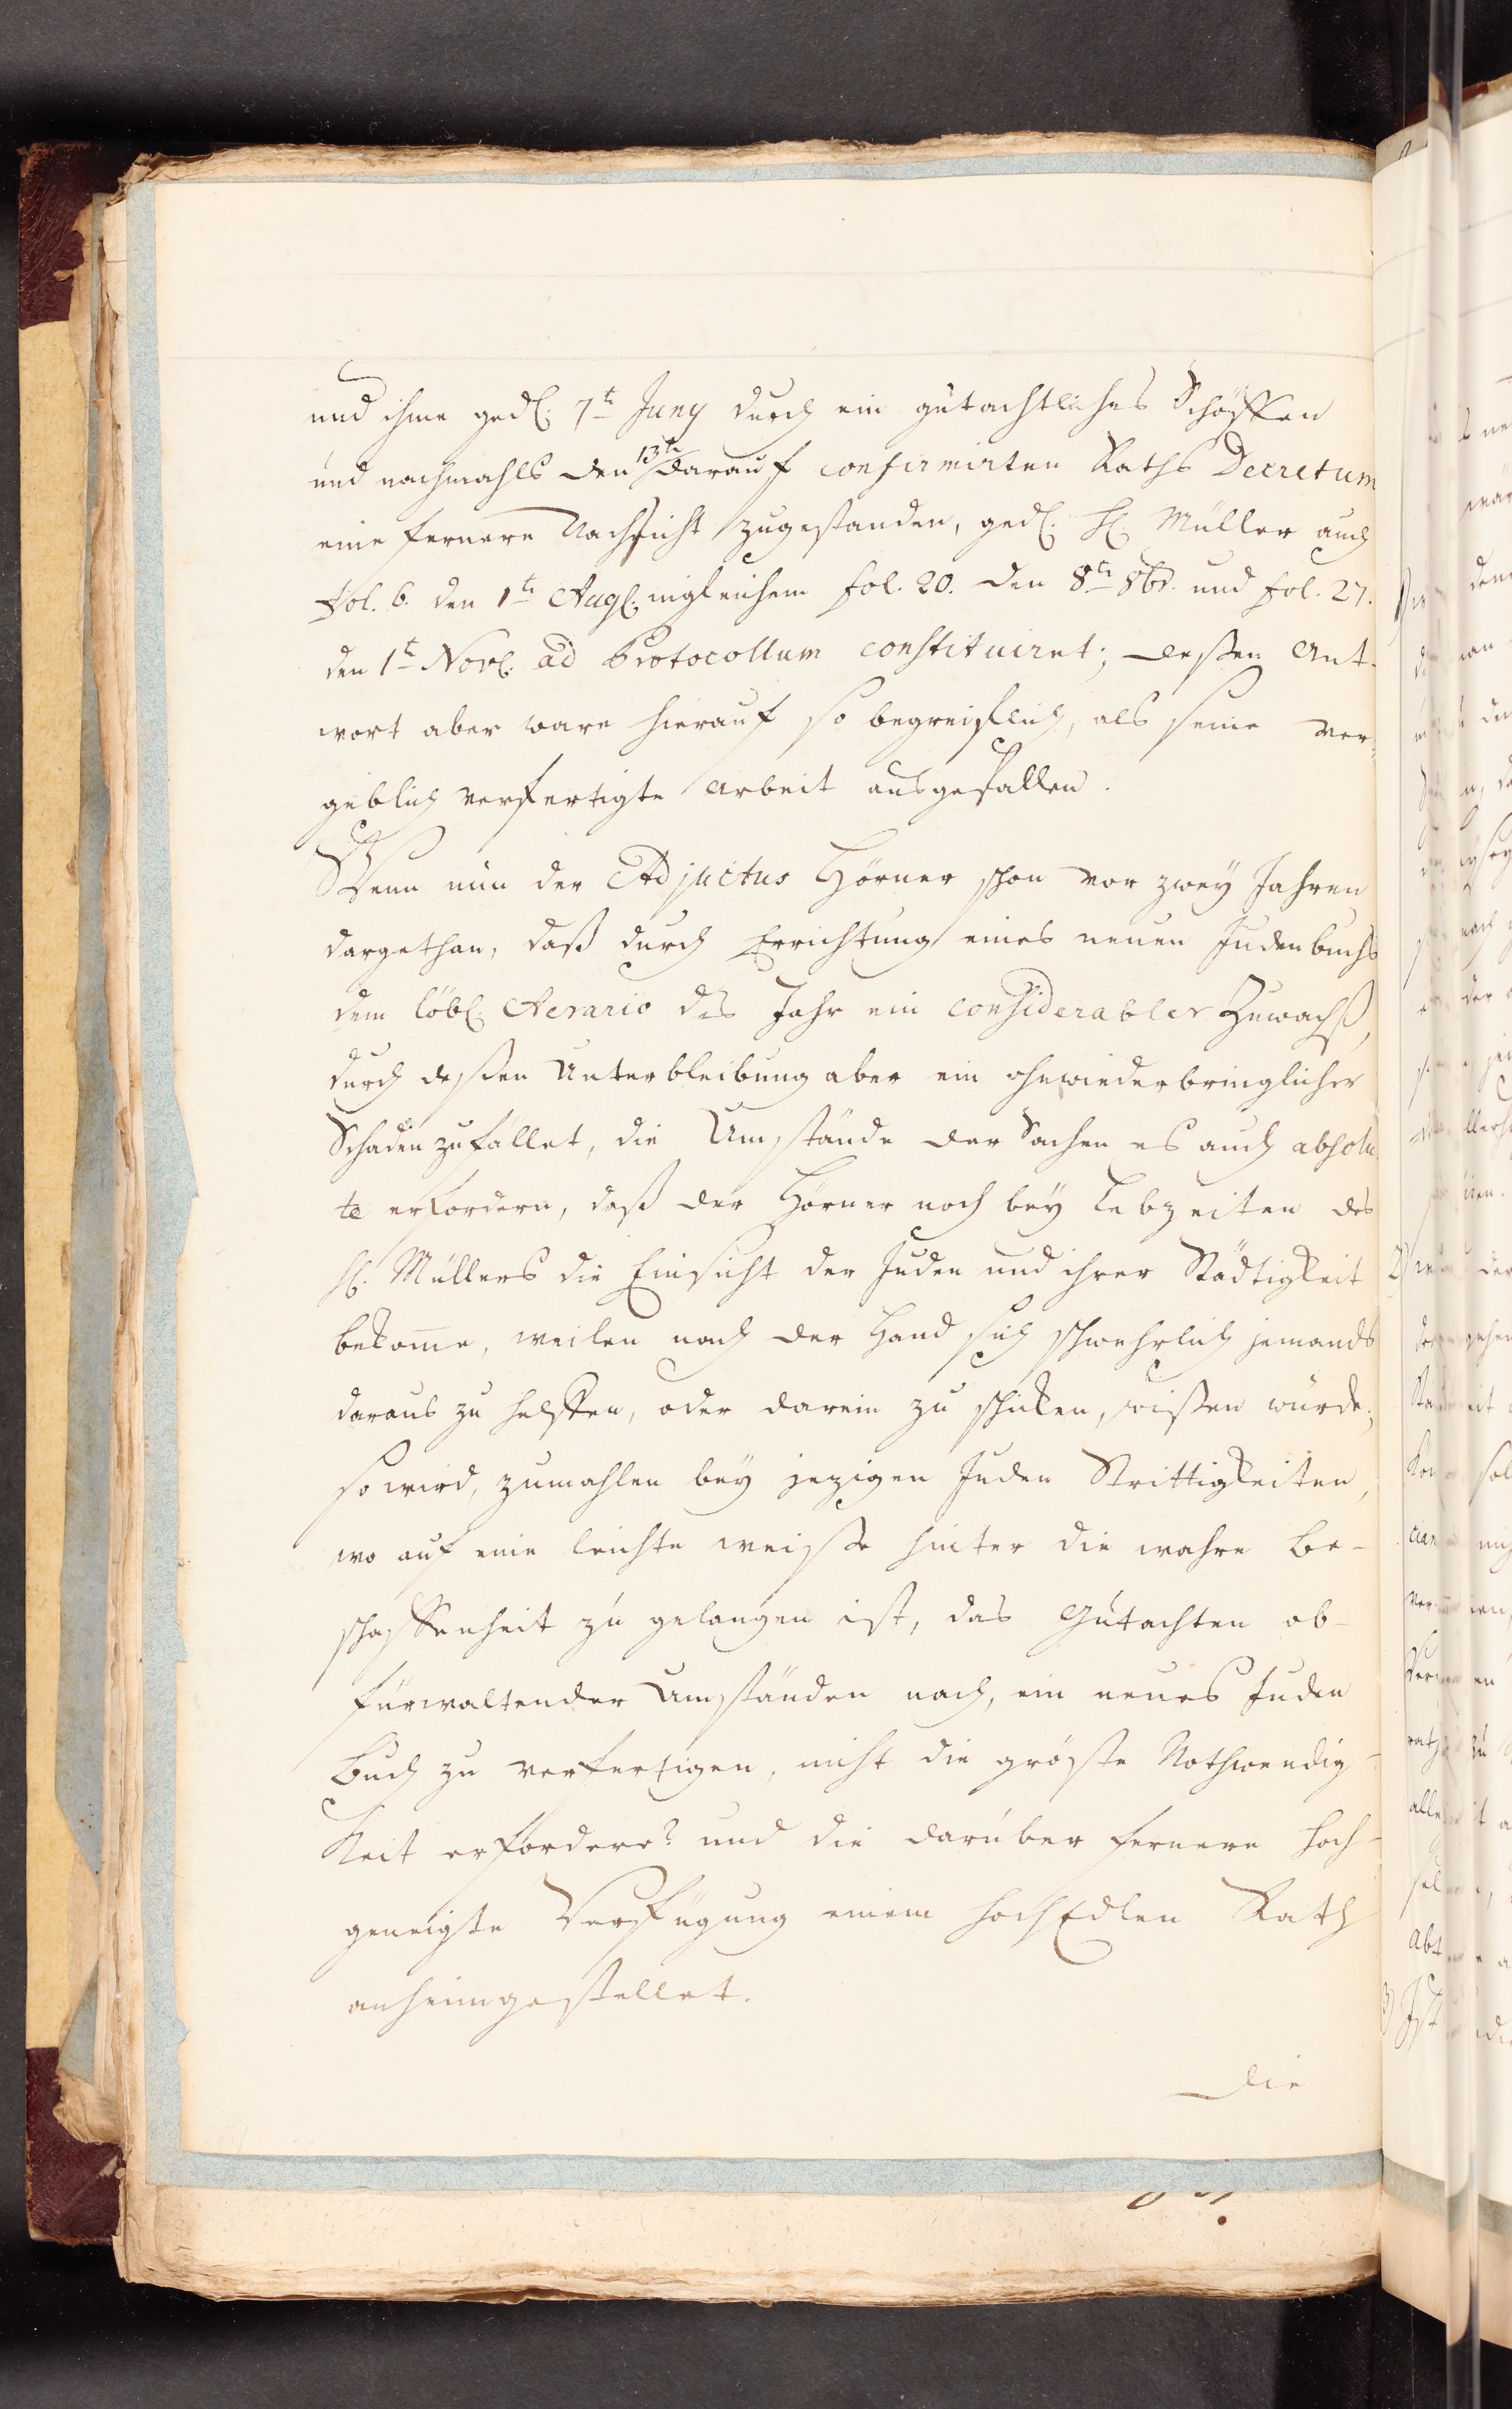 und ihme ged. 7t Juny durch ein gutachtliches Schöffen
und nachmahls den 13te darauf confirmirten Raths Decretum
eine fernere Nachsicht zugestanden, ged. H. Müller auch
Fol. 6. den 1te Aug. ingleichem fol. 20. den 8te 8br. und fol. 27.
den 1t Nov. ad Protocollum constituiret; deßen Ant-
wort aber ware hierauf so begreiflich, als seine ver-
geblich verfertigte Arbeit ausgefallen.
Wenn nun der Adjuctus Hörner schon vor zwey Jahren
dargethan, daß durch Errichtung eines neuen Judenbuchs
dem löbl. Aerario des Jahr ein considerabler Zuwachß,
durch deßen Unterbleibung aber ein ohnwiederbringlicher
Schaden zufället, die Umstände der Sachen es auch absolu-
te erfordern, daß der Hörner noch bey Lebzeiten des
H. Müllers die Einsicht der Juden und ihrer Städtigkeit
bekome, weilen nach der Hand sich schwehrlich jemands
daraus zu helffen, oder darein zu schicken, wißen würde;
so wird, zumahlen bey jezigen Juden Strittigkeiten,
wo auf eine leichte weiße hinter die wahre Be-
schaffenheit zu gelangen ist, das Gutachten ob-
fürwaltender Umständen nach, ein neues Juden
Buch zu verfertigen, nicht die gröste Nothwendig-
keit erfordere? und die darüber fernere hoch-
geneigte Verfügung einem HochEdlen Rath
anheimgestellet.
die